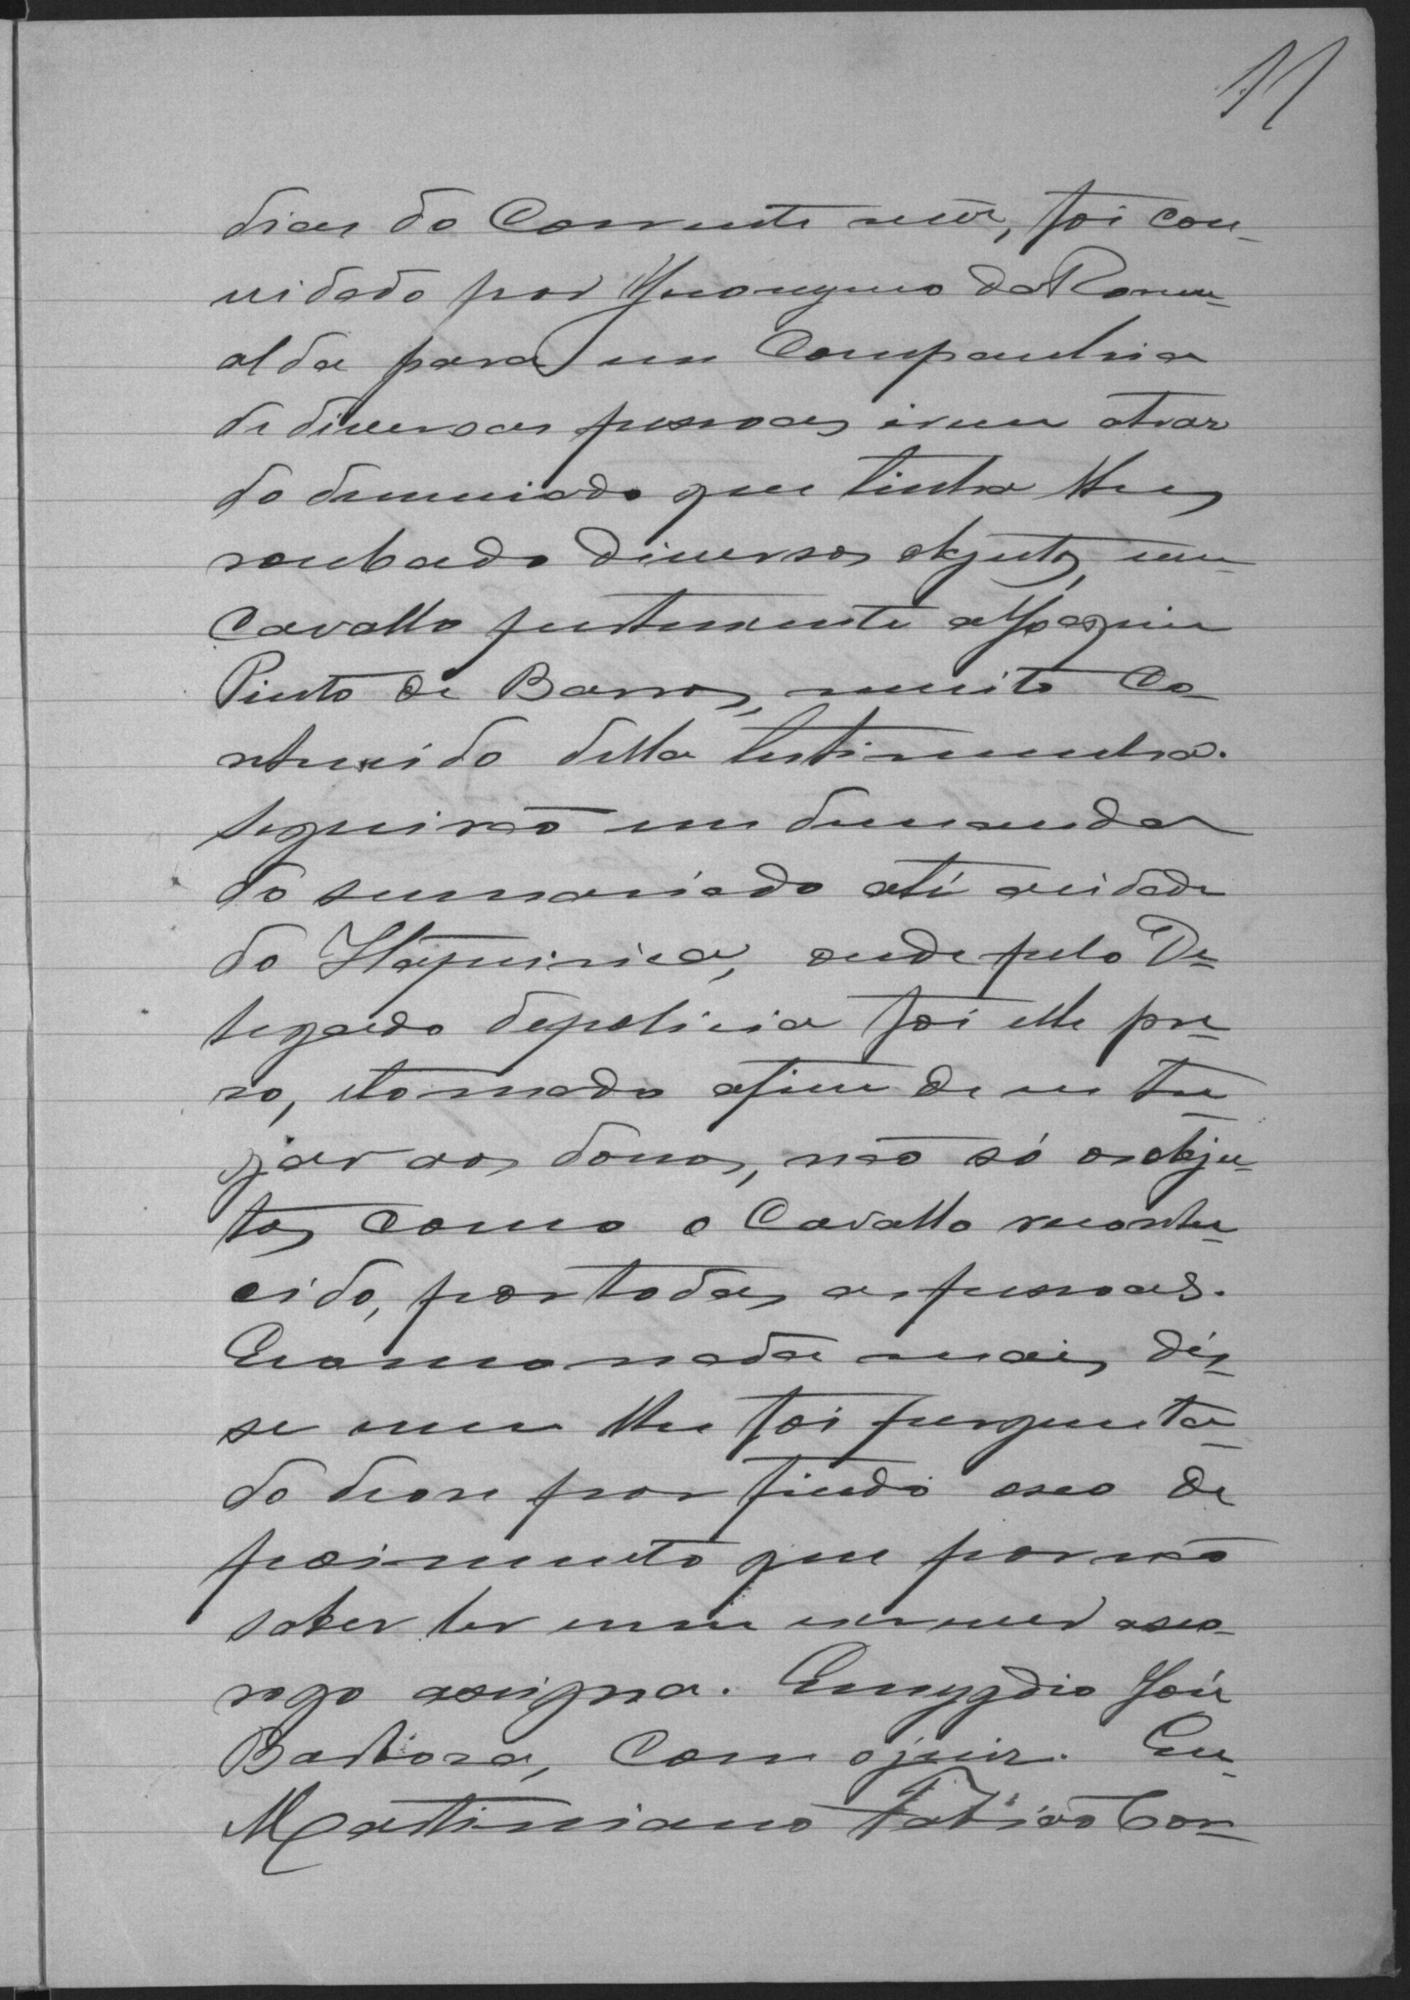 11
dias do Corrente mez, foi con-
vidado por Jeronymo da Romu-
alda para em Companhia
de diversas pessoas irem atraz
do denunciado que tinha lhes
roubado diversos objectos, um
Cavallo pertencente a Joaquim
Pinto de Barros, muito Co-
nhecido della testimunha.
Seguirão em demanda
do summariado até a cidade
do Itapicirica, onde pelo De-
legado de policia foi elle pre-
so, e tomado afim de entre-
gar aos donos, não só os obje-
tos como o Cavallo reconhe-
cido, por todas as pessoas.
E como nada mais dis-
se nem lhe foi pergunta-
do deose por findo o seo de
poimento que por não
saber ler nem escrever a seo
rogo assigna. Emygdio José
Barbosa, Com o juiz. Eu
Martiniano Fabião Cor-